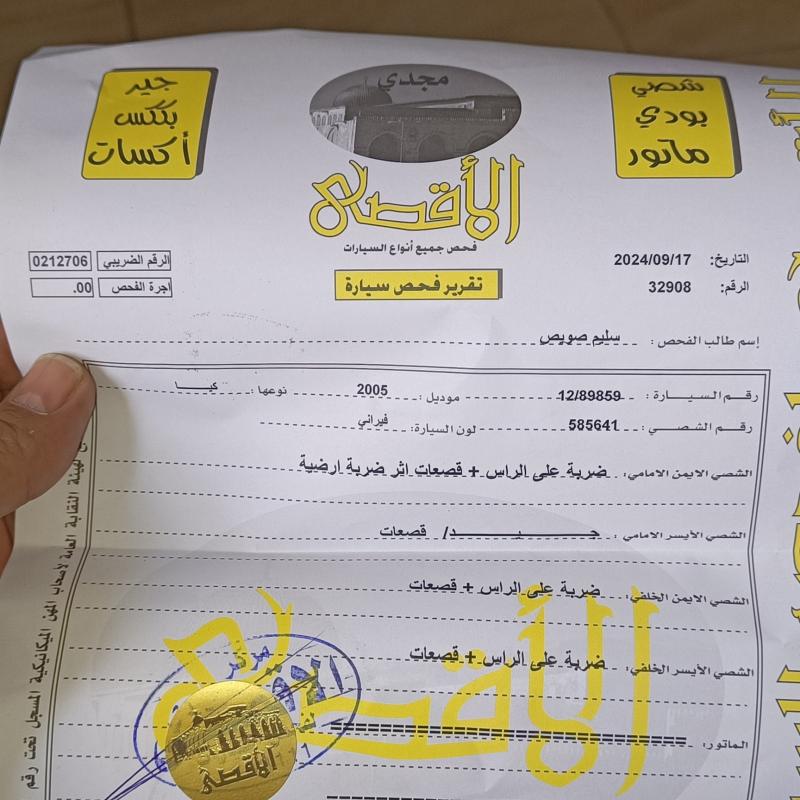 شصي
بودي
ماتور
مجدي
جير
بكس
أكسات
الأقصى
فحص جميع أنواع السيارات
التاريخ: 2024/09/17
الرقم: 32908
تقرير فحص سيارة
الرقم الضريبي 0212706
اجرة الفحص .00
إسم طالب الفحص : سليم صويص
رقم السيارة : 12/89859 موديل: 2005 نوعها: كيا
رقم الشصي : 585641 لون السيارة: فيراني
الشصي الايمن الامامي: ضربة على الراس + قصعات اثر ضربة ارضية
الشصي الأيسر الامامي : جيد/ قصعات
الشصي الايمن الخلفي: ضربة على الراس + قصعات
الشصي الأيسر الخلفي: ضربة على الراس + قصعات
الماتور:
مركز
الأقصى
الأقصى
لهيئة النقابة العامة لأصحاب المهن الميكانيكية المسجل تحت رقم